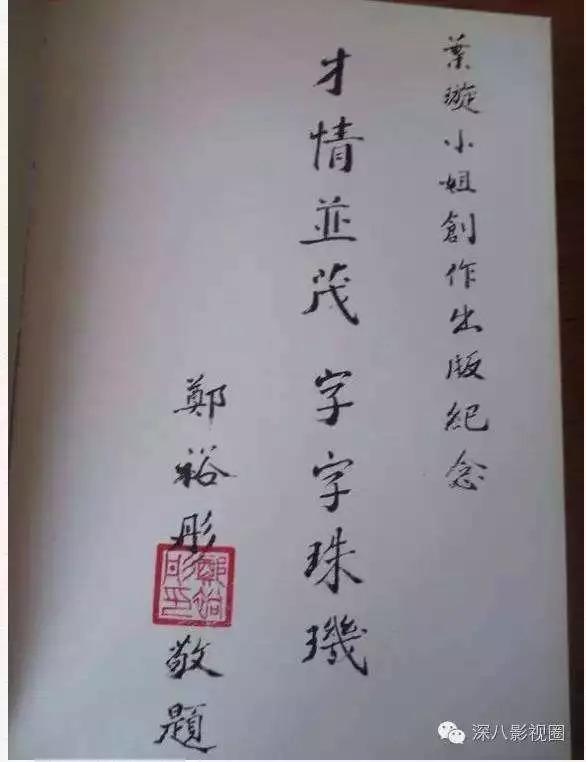 葉璇小姐創作出版紀念
才情並茂 字字珠璣
鄭裕彤 敬題
鄭裕彤印
深八影视圈